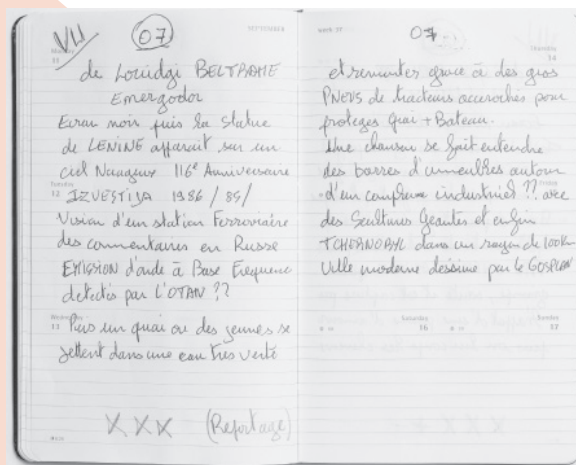 VII 07
de Louidgi BELTRAME
Emergodor
Ecran noir puis la Statue
de LENINE apparait sur un
ciel Nuageux 116e Anniversaire
IZVESTIJA 1986/85/
Vision d'un station Ferroviaire
des commentaires en Russe
EMISSION d'onde à Base Frequence
detectés par L'OTAN ??
Puis un quai ou des jeunes se
jettent dans une eau tres verte
XXX (Reportage)
SEPTEMBER
Monday
11
Tuesday
12
Wednesday
13
07
et remonter grace à des gros
PNEUS de tracteurs accrochés pour
proteges Quai + Bateau.
Une chanson se fait entendre
des barres d'immeubles autour
d'un complexe industriel ?? avec
des Scultures Geantes et enfin
TCHERNOBYL dans un rayon de 100km
Ville moderne dessine par le GOSPLAN
WEEK 37
Thursday
14
Saturday
16
Sunday
17